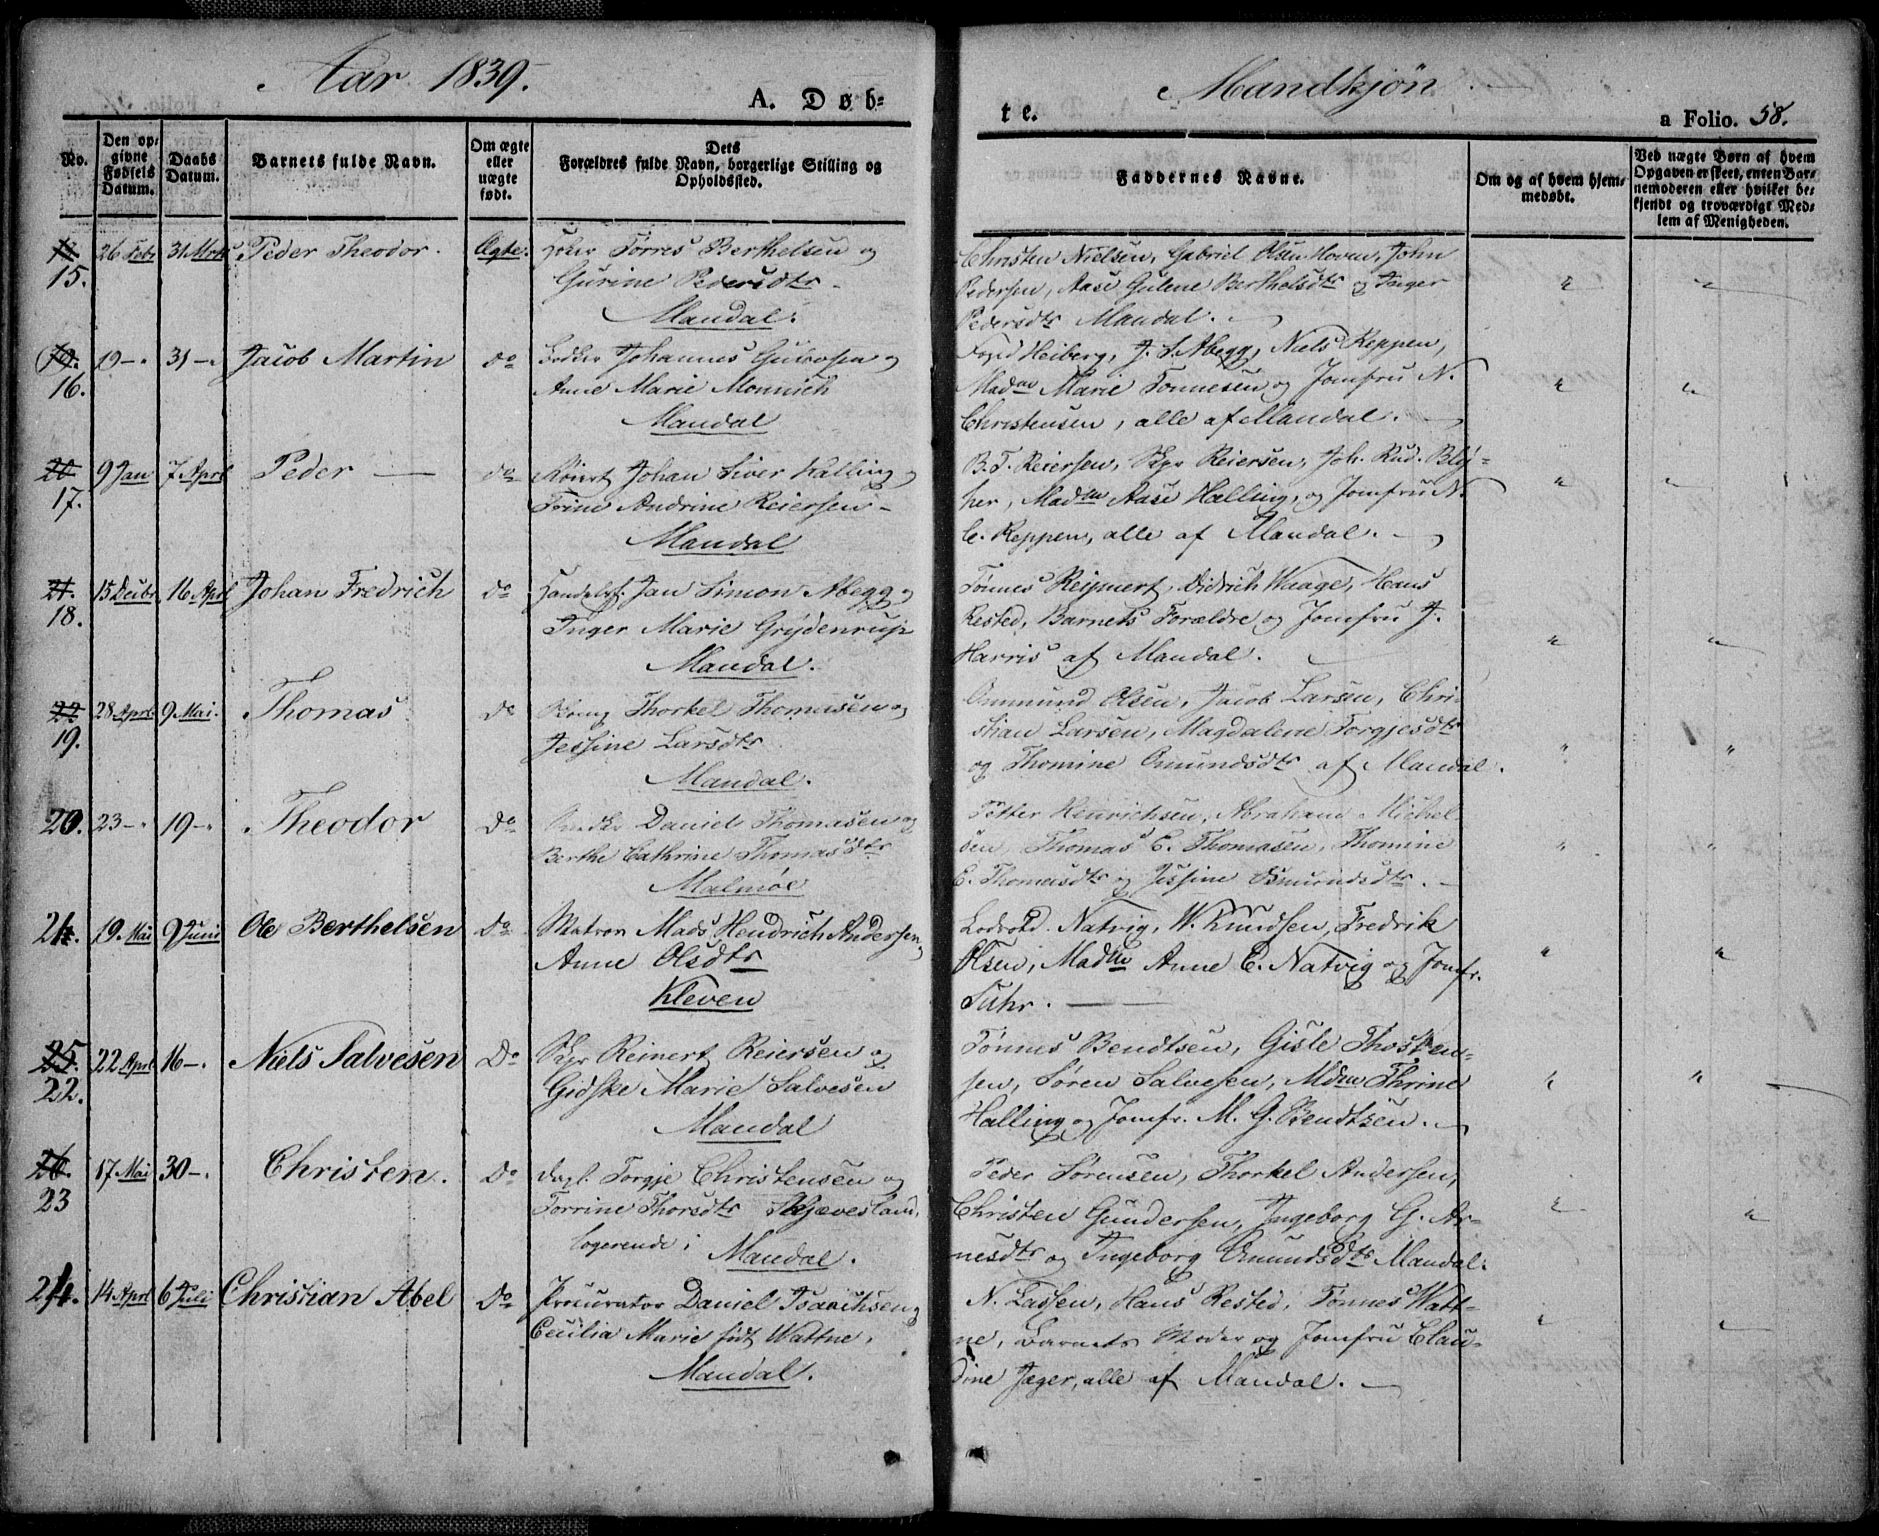 Aar 1839.
A. Døb=
te.
Mandkjøn
a Folio. 58.
No.
Den op=
givne
Fødsels
Datum.
Daabs
Datum.
Barnets fulde Navn.
Om ægte
eller
uægte
født.
Dets
Forældres fulde Navn, borgerlige Stilling og
Opholdssted.
Faddernes Navne.
Om og af hvem hjem=
medøbt.
Ved uægte Børn af hvem
Opgaven er skeet, enten Bar=
nemoderen eller hvilket be=
kjendt og troværdigt Med=
lem af Menigheden.
15. 26 Febr 31 Mrts Peder Theodor. Ægte. Tørres Berthelsen og
Gurine Pedersdtr
Mandal.
Christen Nielsen, Gabriel Olsen Hoven, John
Pedersen, Aase Gulene Berthelsdtr og Inger
Pedersdtr Mandal. "  "
19.
16. 19 — 31 — Jacob Martin do Johannes og
Anne Marie Monnich
Mandal
Foged Heiberg, J. S. Abegg, Niels Reppen,
Madm Marie Tønnesen og Jomfru N.
Christensen, alle af Mandal. "  "
20
17. 9 Jan 7 Aprl Peder do Johan Siver Halling og
Trine Andrine Reiersen
Mandal
B. T. Reiersen, Skpr Reiersen, Joh. Rud. Bly=
her, Madm Aase Halling, og Jomfru N.
C. Reppen, alle af Mandal. "  "
21.
18. 15 Decbr 16 Aprl Johan Fredrich do Handelsf. Jan Simon Abegg og
Inger Marie Grydenrup
Mandal.
Tønnes Reymert, Didrich Waage, Hans
Rested, Barnets Forældre og Jomfru J.
Harris af Mandal. "  "
22
19. 28 Aprl 9 Mai. Thomas do Thorkel Thomasen og
Jessine Larsdtr
Mandal.
Ommund Olsen, Jacob Larsen, Chri=
stian Larsen, Magdalene Torgjesdtr
og Thomine Omundsdtr af Mandal. "  "
20. 23 — 19 — Theodor Do Daniel Thomasen og
Berthe Cathrine Thomasdtr
Malmøe
Petter Henrichsen, Abraham Michel
sen Thomas C. Thomasen, Thomine
C. Thomasdtr og Jessine Osmundsdtr. "  "
21. 19. Mai 9 Juni Ole Berthelsen Do Matros Mads Hendrich Andersen,
Anne Olsdtr
Kleven
Lodsold. Natvig, W. Knudsen, Fredrik
Olsen, Madm Anne C. Natvig og Jomfr.
Suhr. "  "
25.
22. 22 Aprl 16 — Niels Salvesen Do Skpr Reinert Reiersen og
Gidske Marie Salvesen
Mandal
Tønnes Bendtsen, Gisle Thosten=
sen, Søren Salvesen, Mdm Thrine
Halling og Jomfr. M. G. Bendtsen. "  "
26.
23 17 Mai 30 — Christen. Do Dagl. Torgje Christensen og
Torrine Thorsdtr Skjævesland,
logerende i Mandal.
Peder Sørensen, Thorkel Andersen,
Christen Gundersen, Ingeborg G. Ar=
nesdtr og Ingeborg Omundsdtr Mandal. "  "
24. 14 Aprl 6 Juli Christian Abel Do Procurator Daniel Isaachsen og
Cecilia Marie født Wattne,
Mandal.
N. Lassen, Hans Rested, Tønnes Watt=
ne, Barnets Moder og Jomfru Clau=
dine Jæger, alle af Mandal. "  "